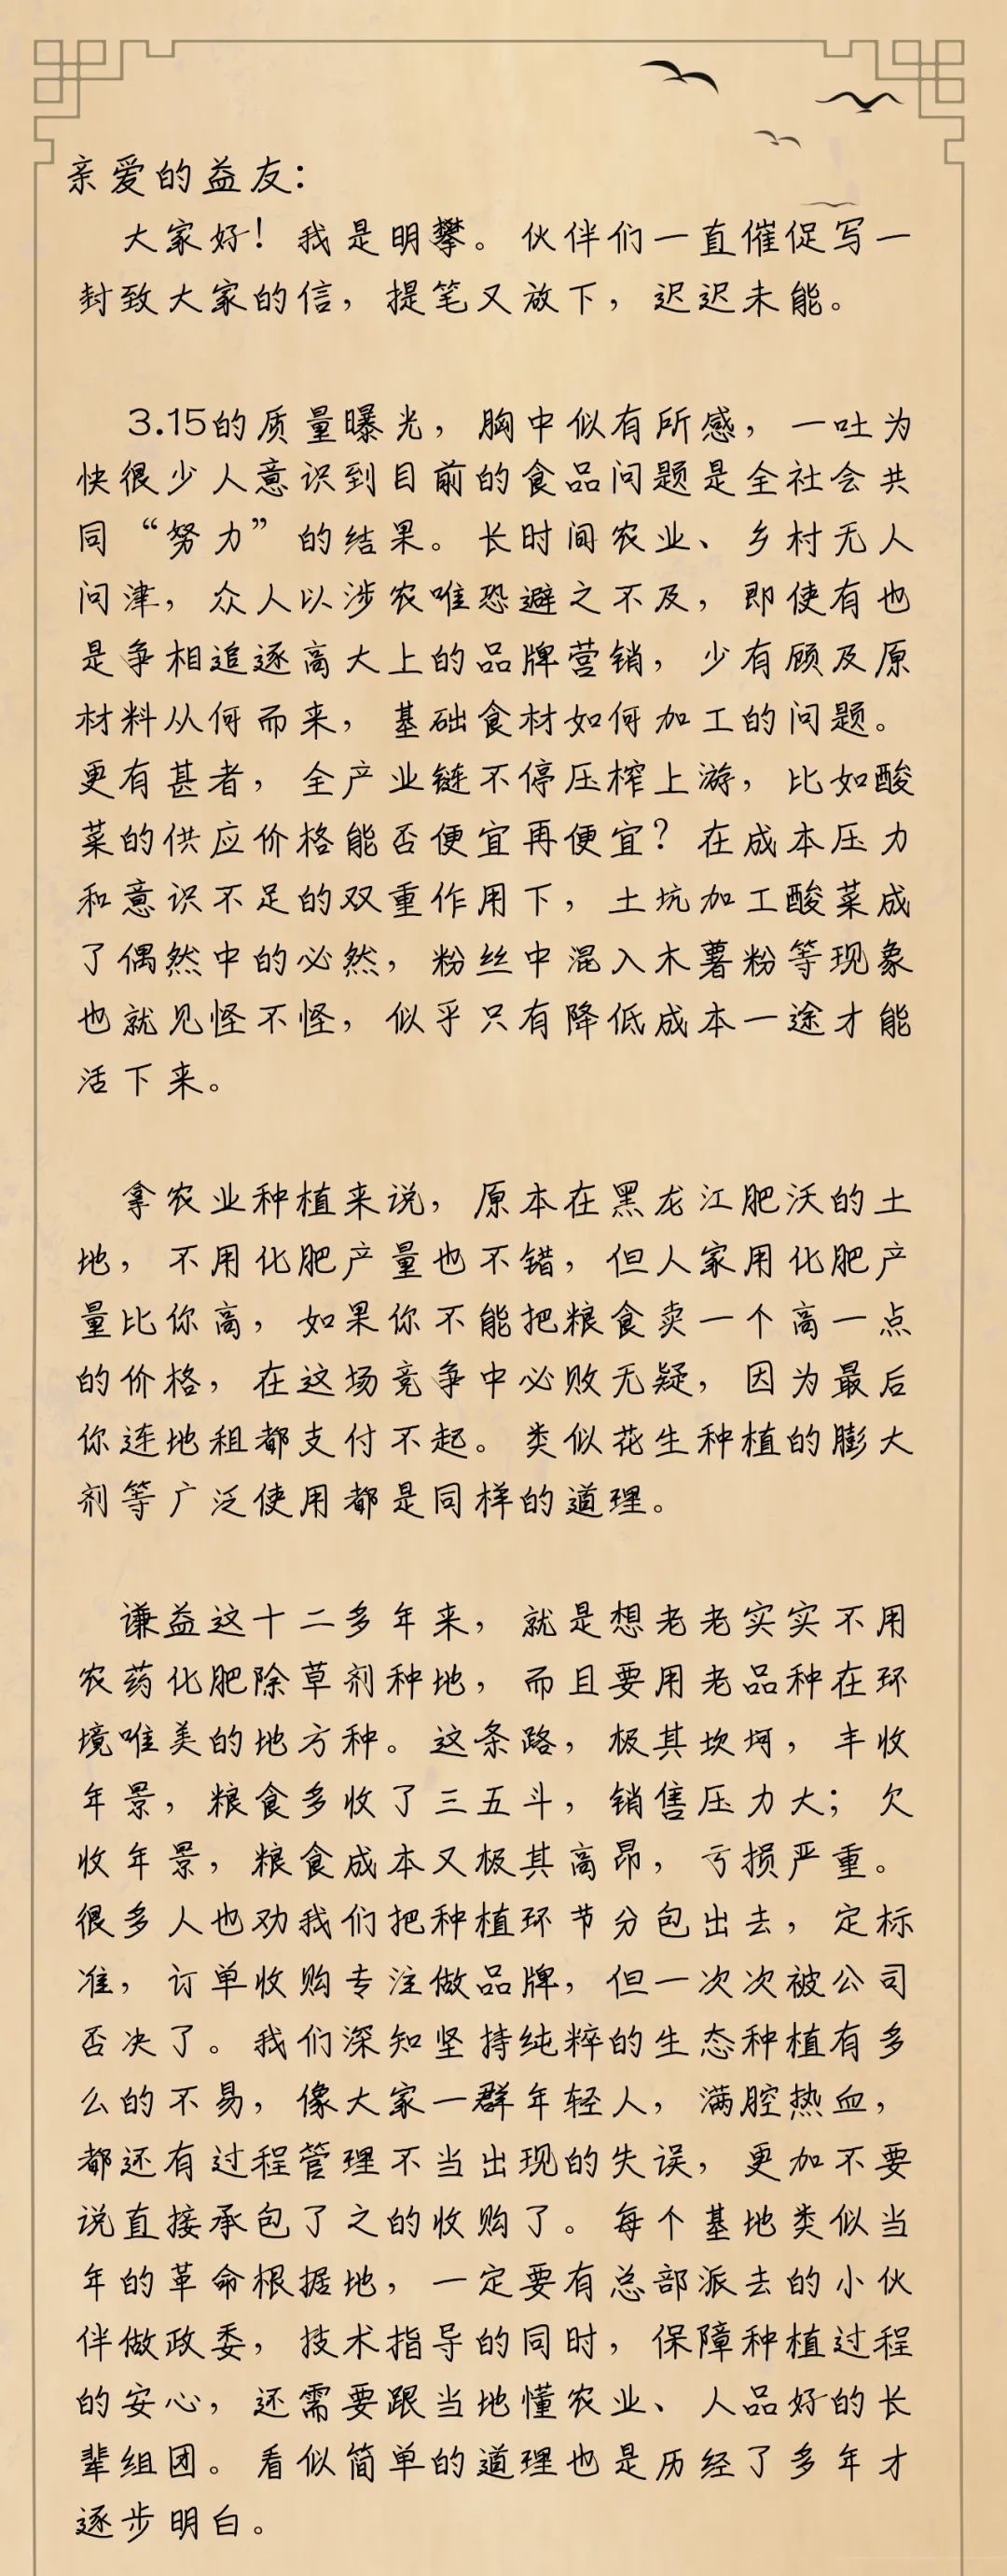 亲爱的益友：
大家好！我是明攀。伙伴们一直催促写一
封致大家的信，提笔又放下，迟迟未能。
3.15的质量曝光，胸中似有所感，一吐为
快很少人意识到目前的食品问题是全社会共
同“努力”的结果。长时间农业、乡村无人
问津，众人以涉农唯恐避之不及，即使有也
是争相追逐高大上的品牌营销，少有顾及原
材料从何而来，基础食材如何加工的问题。
更有甚者，全产业链不停压榨上游，比如酸
菜的供应价格能否便宜再便宜？在成本压力
和意识不足的双重作用下，土坑加工酸菜成
了偶然中的必然，粉丝中混入木薯粉等现象
也就见怪不怪，似乎只有降低成本一途才能
活下来。
拿农业种植来说，原本在黑龙江肥沃的土
地，不用化肥产量也不错，但人家用化肥产
量比你高，如果你不能把粮食卖一个高一点
的价格，在这场竞争中必败无疑，因为最后
你连地租都支付不起。类似花生种植的膨大
剂等广泛使用都是同样的道理。
谦益这十二多年来，就是想老老实实不用
农药化肥除草剂种地，而且要用老品种在环
境唯美的地方种。这条路，极其坎坷，丰收
年景，粮食多收了三五斗，销售压力大；欠
收年景，粮食成本又极其高昂，亏损严重。
很多人也劝我们把种植环节分包出去，定标
准，订单收购专注做品牌，但一次次被公司
否决了。我们深知坚持纯粹的生态种植有多
么的不易，像大家一群年轻人，满腔热血，
都还有过程管理不当出现的失误，更加不要
说直接承包了之的收购了。每个基地类似当
年的革命根据地，一定要有总部派去的小伙
伴做政委，技术指导的同时，保障种植过程
的安心，还需要跟当地懂农业、人品好的长
辈组团。看似简单的道理也是历经了多年才
逐步明白。